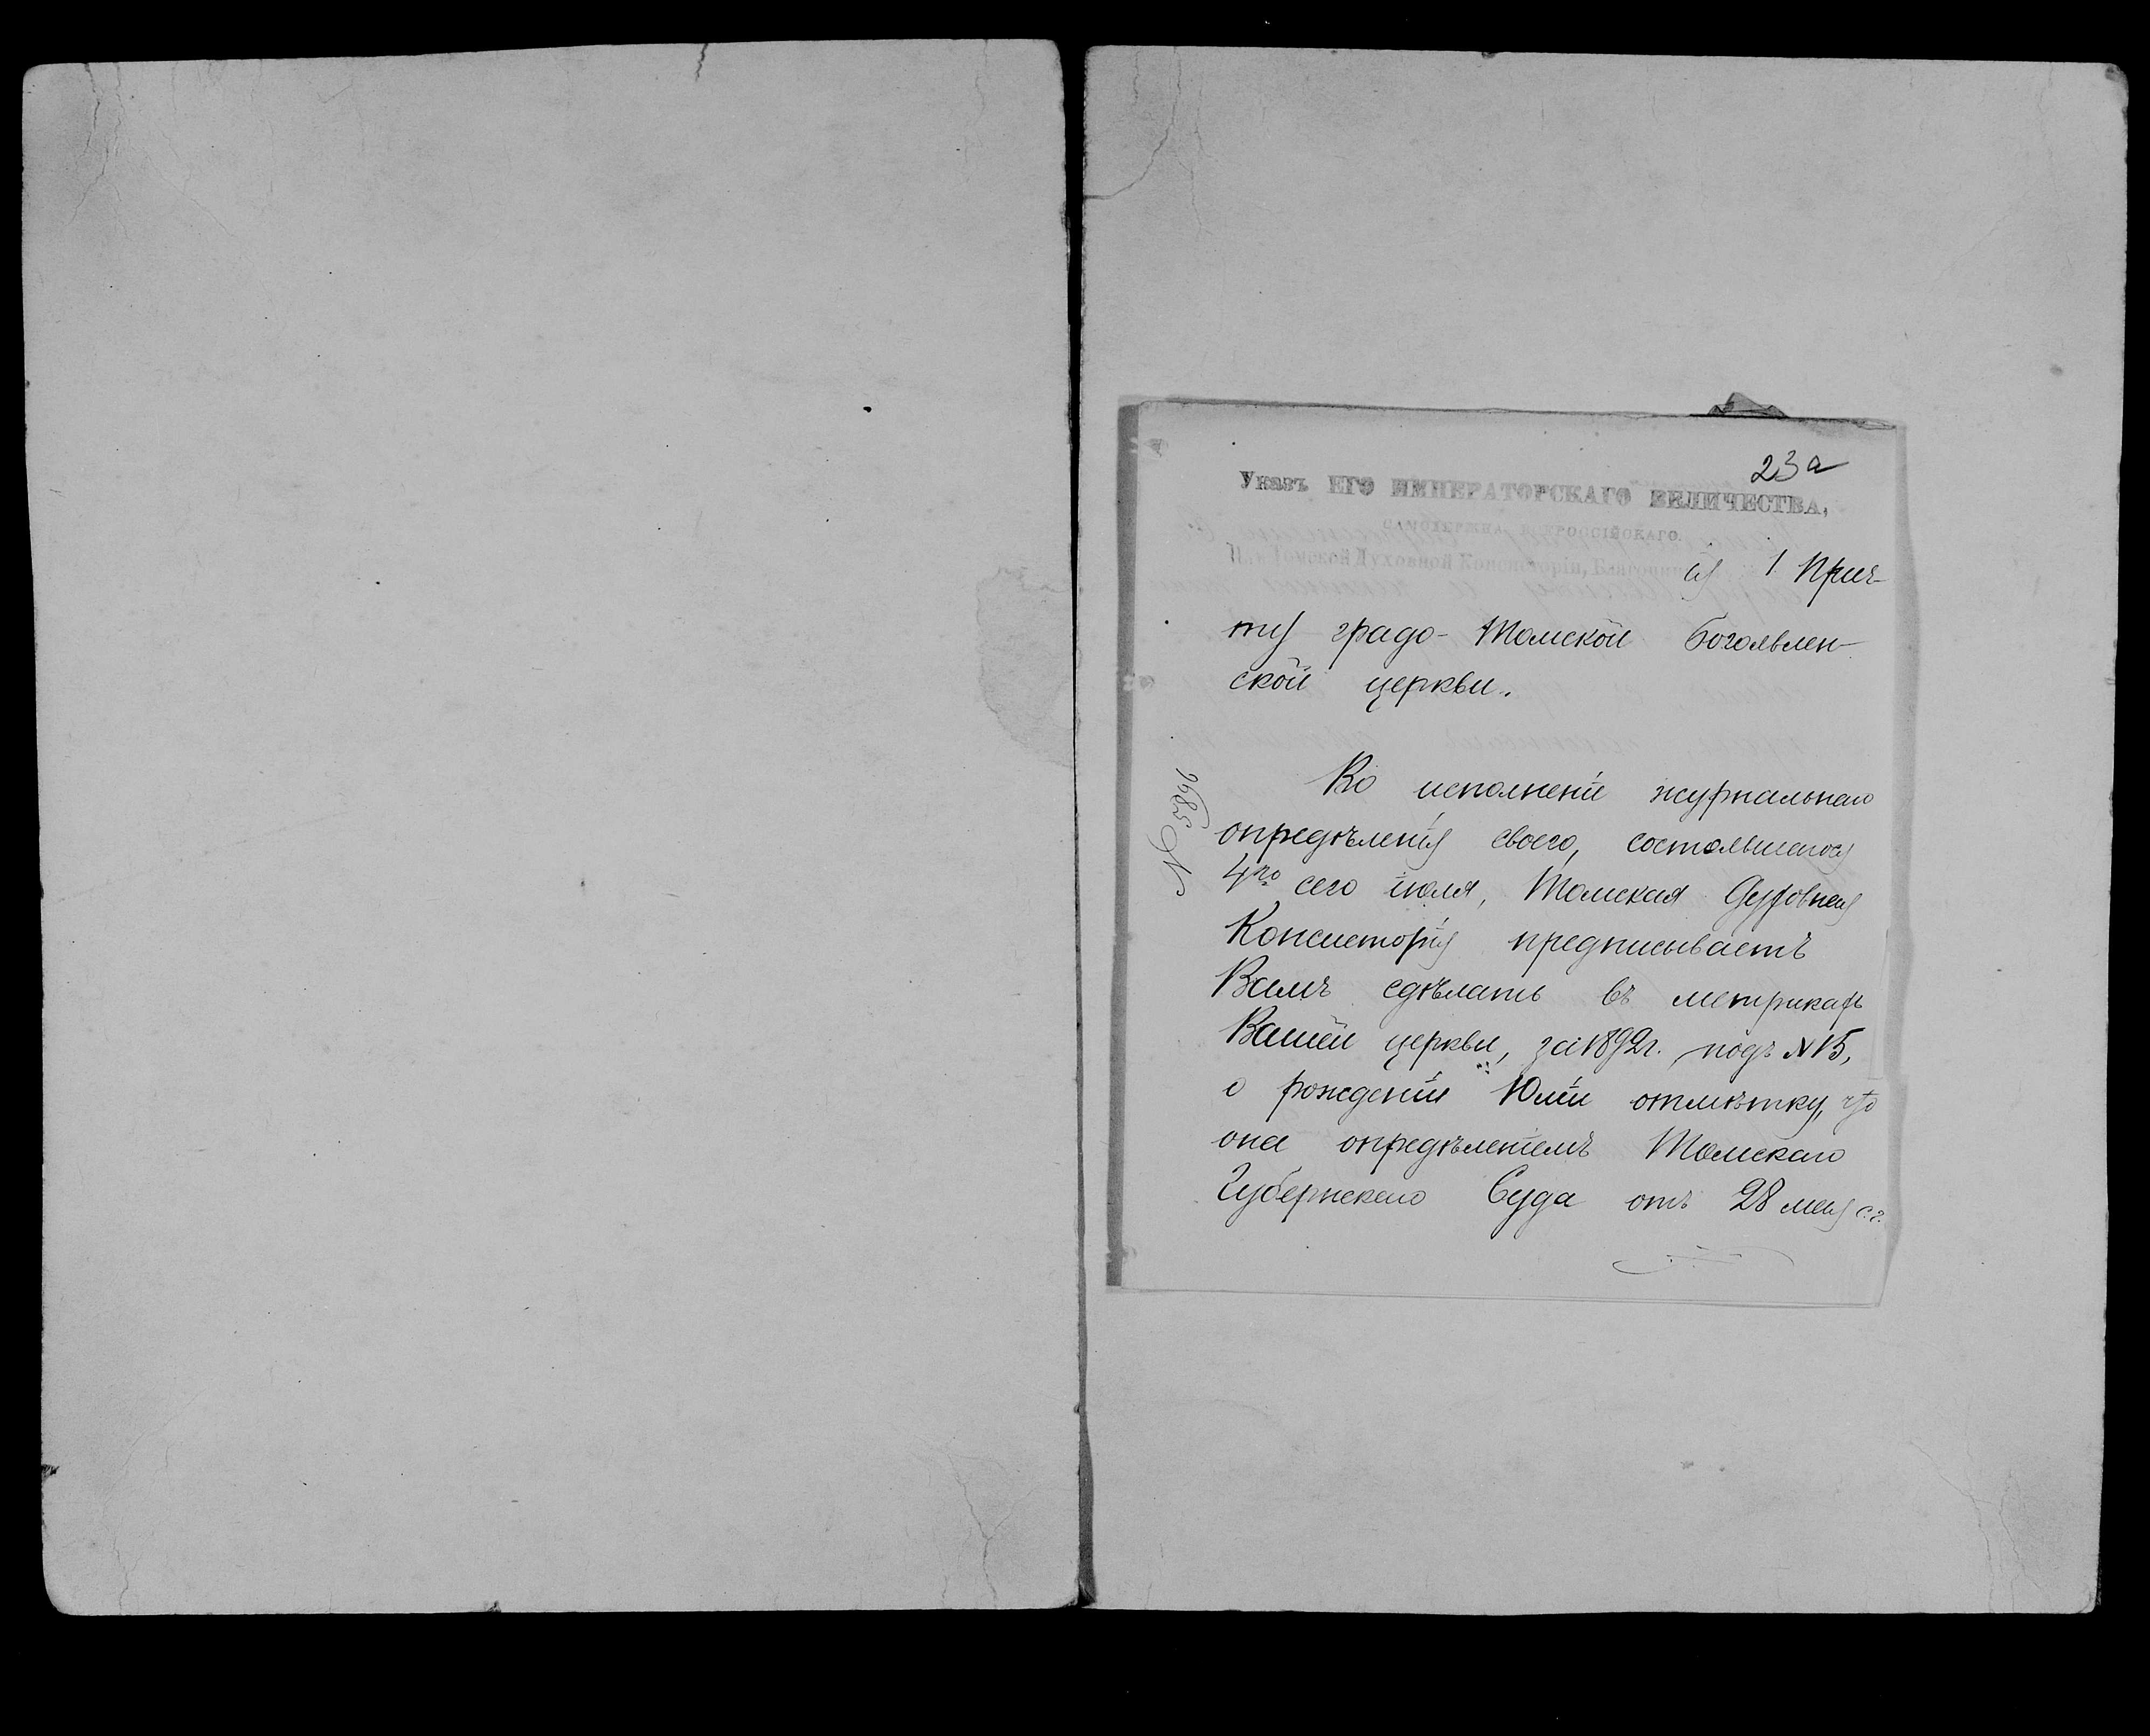 23а
Указъ ЕГО ИМПЕРАТОРСКАГО ВЕЛИЧЕСТВА,
САМОДЕРЖЦА ВСЕРОССІЙСКАГО.
Томской Духовной Консисторіи,
Прич-
ту градо-Томской Богоявлен-
ской церкви.
№ 5896
Во исполненіе журнальнаго
опредѣленія своего, состоявшагося
4го сего іюля, Томская Духовная
Консисторія предписываетъ
Вамъ сдѣлать въ метрикахъ
Вашей церкви, за 1892г. подъ №15,
о рожденіи Юліи отмѣтку, что
она опредѣленіемъ Томскаго
Губернскаго Суда отъ 28 мая с.г.